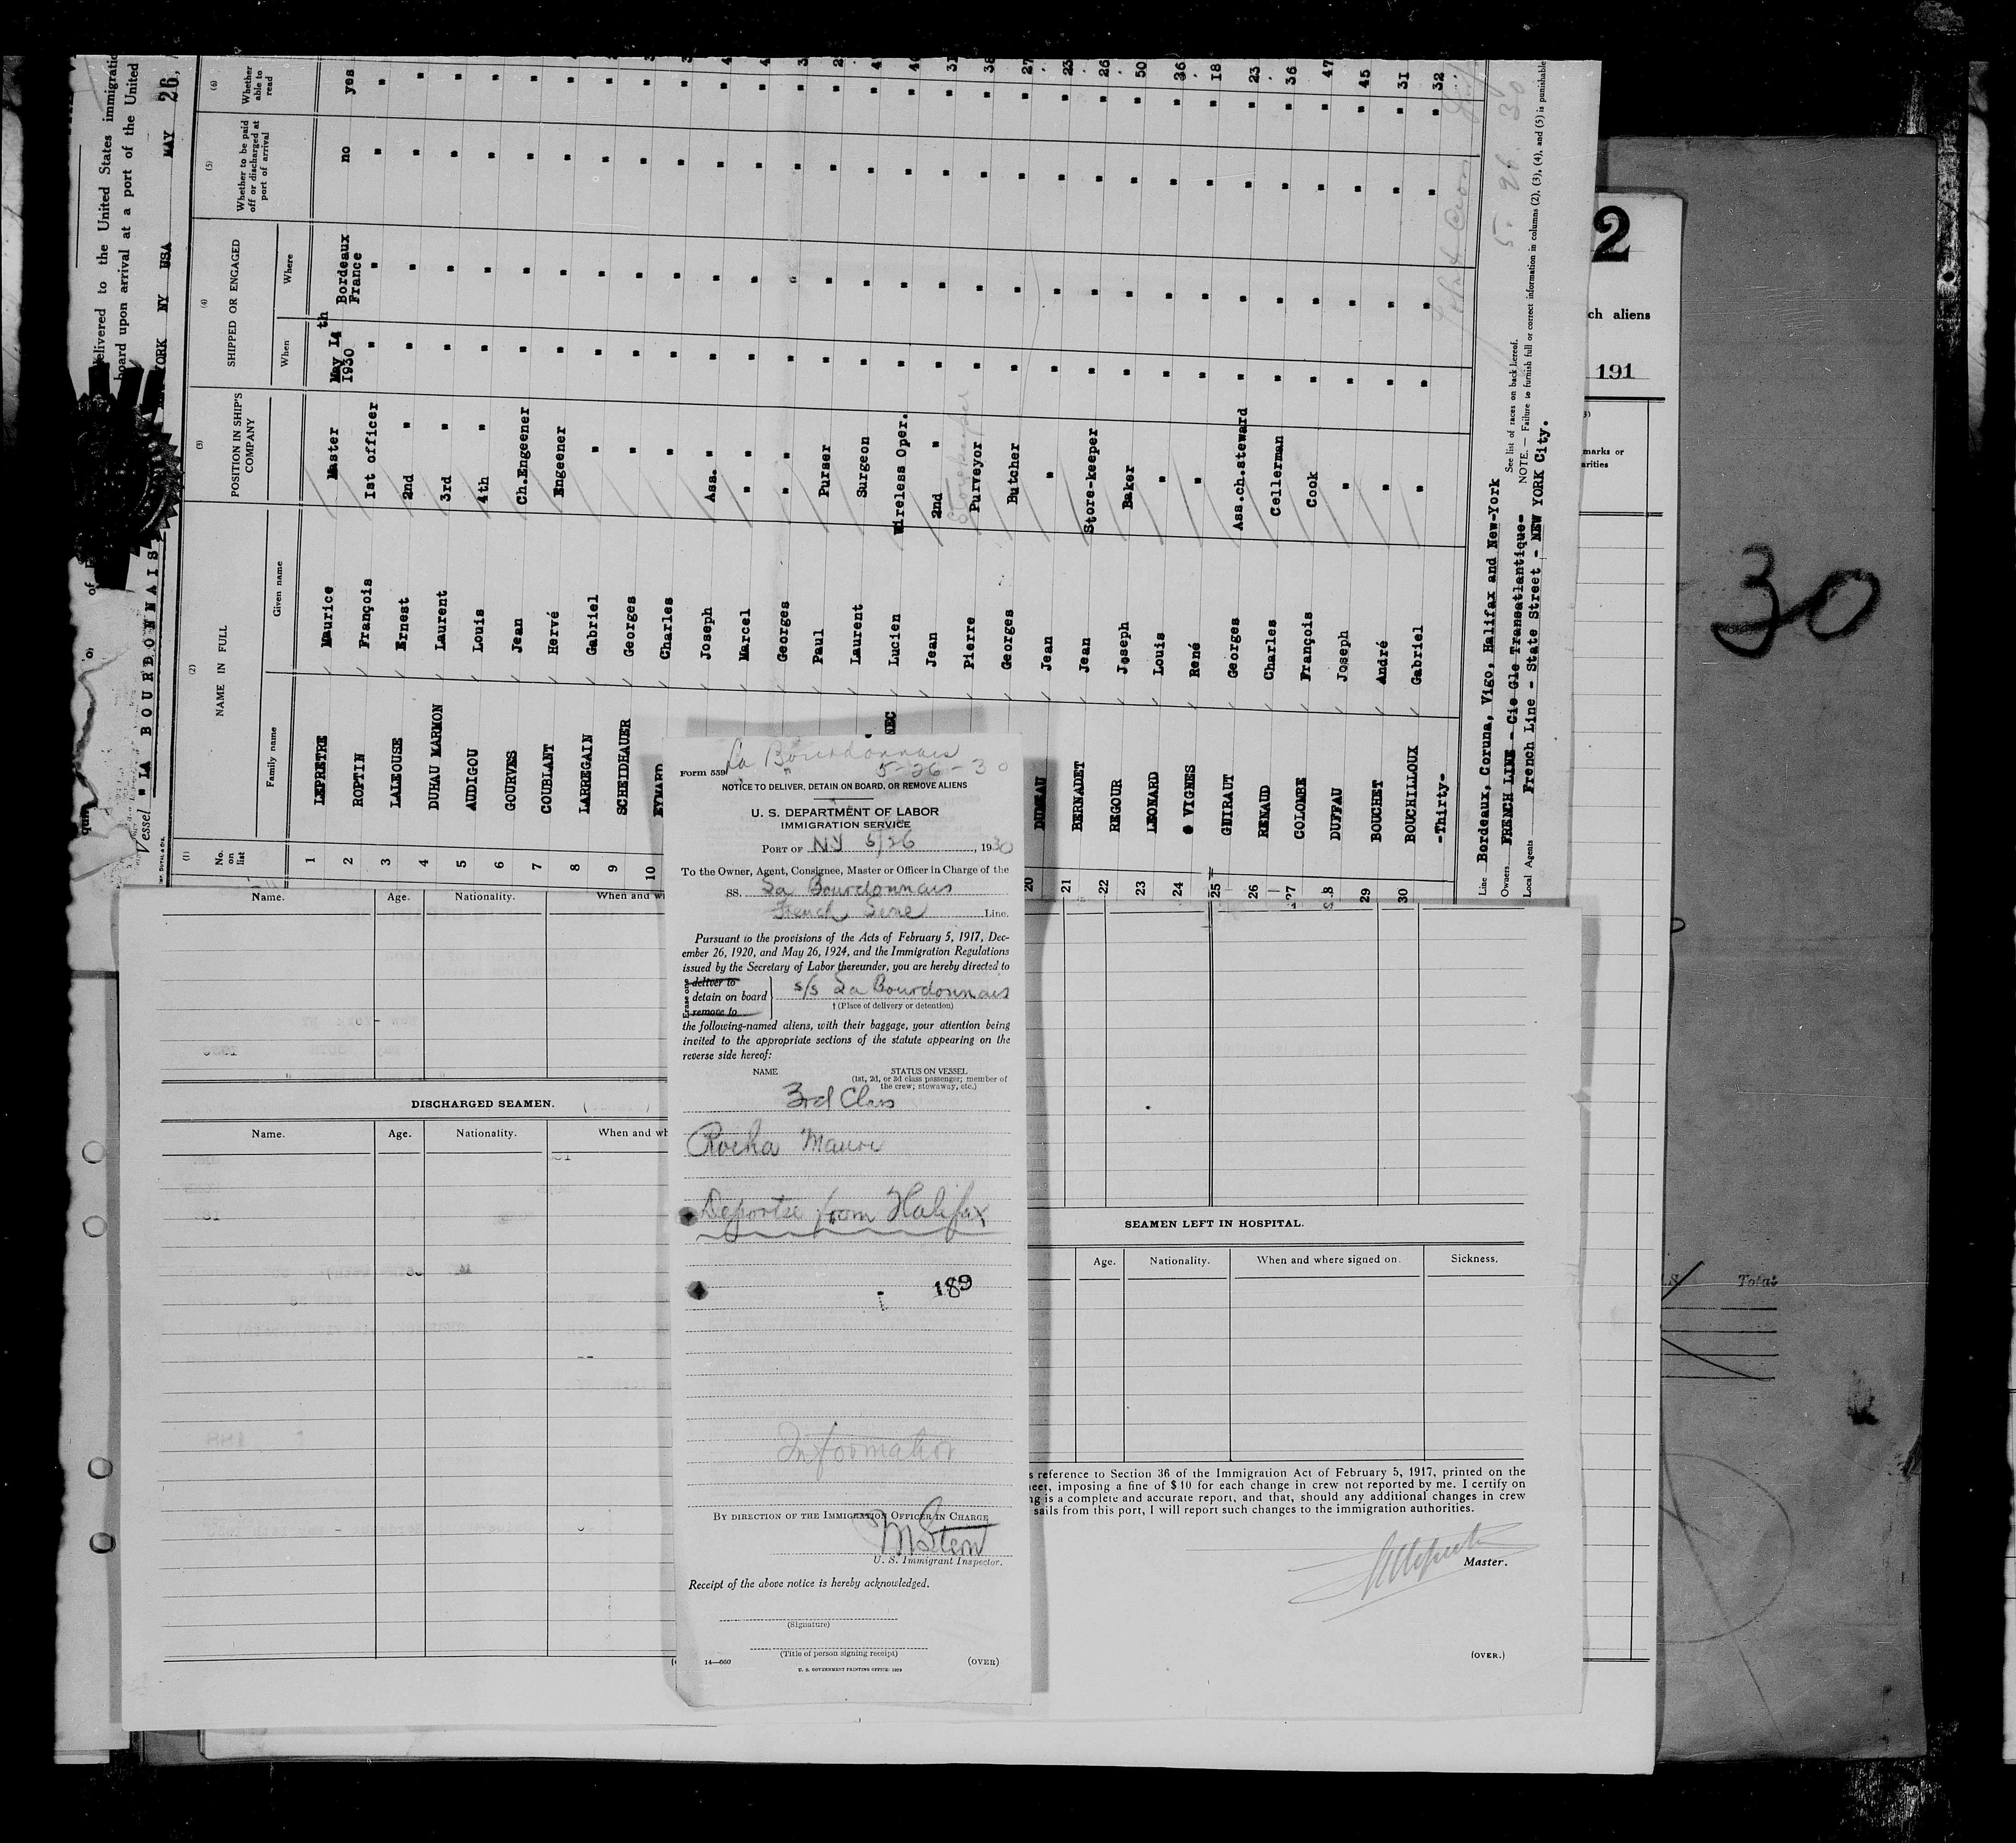 elivered to the United States immigratio
board upon arrival at a port of the United
YORK NY USA MAY 26,
Vessel " LA BOURDONNAIS
(1) (2) (3) (4) (5) (6)
No. on list
NAME IN FULL
Family name Given name
POSITION IN SHIP'S COMPANY
SHIPPED OR ENGAGED
When Where
Whether to be paid off or discharged at port of arrival
Whether able to read
1 LEPRETRE Maurice Master May 14th 1930 Bordeaux France no yes
2 ROPTIN François 1st officer " " " "
3 LALEOUSE Ernest 2nd " " " " "
4 DUHAU MARMON Laurent 3rd " " " " "
5 AUDIGOU Louis 4th " " " " "
6 GOURVES Jean Ch.Engeener " " " "
7 COUBLANT Hervé Engeener " " " "
8 LARREGAIN Gabriel " " " " "
9 SCHEIDHAUER Georges " " " " "
10 EYMARD Charles " " " " "
Joseph Ass. " " " " "
Marcel " " " " " "
Georges " " " " " "
Paul Purser " " " "
Laurent Surgeon " " " "
NEC Lucien Wireless Oper. " " " "
Jean 2nd " " " " "
Storekeeper
Pierre Purveyor " " " " 38
Georges Butcher " " " " 27
20 Jean " " " " "
21 BERNADET Jean Store-keeper " " " " 26
22 REGOUR Joseph Baker " " " " 50
23 LEONARD Louis " " " " " 36
24 VIGNES René " " " " " 18
25 GUIRAUT Georges Ass.ch.steward " " " " 23
26 RENAUD Charles Cellerman " " " " 36
27 COLOMBE François Cook " " " " 47
28 DUFFAU Joseph " " " " " 45
29 BOUCHET André " " " " " 31
30 BOUCHILLOUX Gabriel " " " " " 32
-Thirty-
5. 26. 30
Line Bordeaux, Coruna, Vigo, Halifax and New-York
See list of races on back hereof.
Owners FRENCH LINE - Cie Gle Transatlantique-
NOTE. — Failure to furnish full or correct information in columns (2), (3), (4), and (5) is punishable
Local Agents French Line - State Street - NEW YORK City.
2
ch aliens
191
marks or
arities
30
Total
Name. Age. Nationality. When and w
DISCHARGED SEAMEN.
Name. Age. Nationality. When and wh
La Bourdonnais
Form 559 " 5-26-30
NOTICE TO DELIVER, DETAIN ON BOARD, OR REMOVE ALIENS
U. S. DEPARTMENT OF LABOR
IMMIGRATION SERVICE
PORT OF NY 5/26, 1930
To the Owner, Agent, Consignee, Master or Officer in Charge of the
SS. La Bourdonnais
French Line Line.
Pursuant to the provisions of the Acts of February 5, 1917, Dec-
ember 26, 1920, and May 26, 1924, and the Immigration Regulations
issued by the Secretary of Labor thereunder, you are hereby directed to
Erase one
deliver to
detain on board
remove to
s/s La Bourdonnais
† (Place of delivery or detention)
the following-named aliens, with their baggage, your attention being
invited to the appropriate sections of the statute appearing on the
reverse side hereof:
NAME STATUS ON VESSEL
(1st, 2d, or 3d class passenger; member of
the crew; stowaway, etc.)
3rd Class
Rocha
Deportee from Halifax
189
Information
BY DIRECTION OF THE IMMIGRATION OFFICER IN CHARGE
M Stern
U. S. Immigrant Inspector.
Receipt of the above notice is hereby acknowledged.
(Signature)
(Title of person signing receipt)
14—660 U. S. GOVERNMENT PRINTING OFFICE: 1929 (OVER)
SEAMEN LEFT IN HOSPITAL.
Age. Nationality. When and where signed on. Sickness.
s reference to Section 36 of the Immigration Act of February 5, 1917, printed on the
eet, imposing a fine of $10 for each change in crew not reported by me. I certify on
ng is a complete and accurate report, and that, should any additional changes in crew
sails from this port, I will report such changes to the immigration authorities.
Master.
(OVER.)